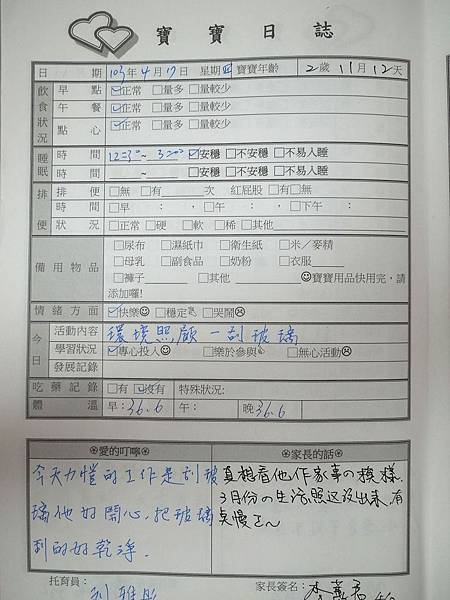 寶寶日誌
日期 103年4月17日 星期四 寶寶年齡 2歲11月12天
飲食狀況 早點 ☑正常 □量多 □量較少
午餐 ☑正常 □量多 □量較少
點心 ☑正常 □量多 □量較少
睡眠 時間 12:30~3:00 ☑安穩 □不安穩 □不易入睡
時間 ~ □安穩 □不安穩 □不易入睡
排便 排便 □無 □有 次 紅屁股 □有□無
時間 □早: , □午: , □下午:
狀況 □正常 □硬 □軟 □稀 □其他
備用物品 □尿布 □濕紙巾 □衛生紙 □米/麥精
□母乳 □副食品 □奶粉 □衣服
□褲子 □其他 ☺寶寶用品快用完,請
添加囉!
情緒方面 ☑快樂☺ □穩定 □哭鬧☹
今日 活動內容 環境照顧—刮玻璃
學習狀況 ☑專心投入☺ □樂於參與 □無心活動☹
發展記錄
吃藥記錄 □有 ☑沒有 特殊狀況:
體溫 早:36.6 午: 晚36.6
愛的叮嚀 家長的話
今天力愷的工作是刮玻
璃他好開心.把玻璃
刮的好乾淨.
真想看他作家事の模樣.
3月份の生活照還沒出來,有
夠慢ㄛ~
托育員:
家長簽名: